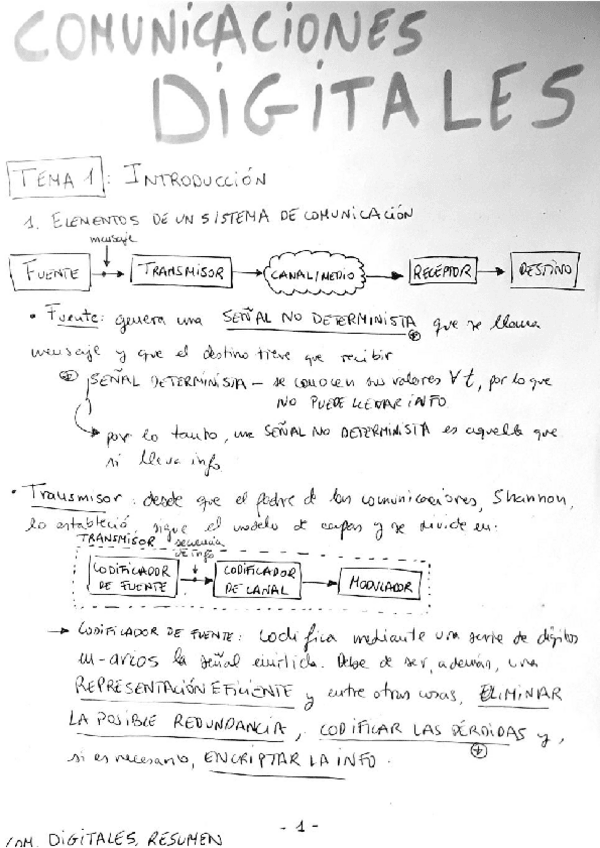 COMUNICACIONES
DIGITALES
TEMA 1: INTRODUCCIÓN
1. ELEMENTOS DE UN SISTEMA DE COMUNICACIÓN
mensaje
FUENTE TRANSMISOR CANAL/MEDIO RECEPTOR DESTINO
• Fuente: genera una SEÑAL NO DETERMINISTA que se llama
mensaje y que el destino tiene que recibir
SEÑAL DETERMINISTA – se conocen sus valores ∀t, por lo que
NO PUEDE LLEVAR INFO
por lo tanto, una SEÑAL NO DETERMINISTA es aquella que
si lleva info.
• Transmisor: desde que el padre de las comunicaciones, Shannon,
lo estableció, sigue el modelo de capas y se divide en:
TRANSMISOR secuencia
de info
CODIFICADOR CODIFICADOR MODULADOR
DE FUENTE DE CANAL
→ CODIFICADOR DE FUENTE: codifica mediante una serie de dígitos
m-arios la señal emitida. Debe de ser, además, una
REPRESENTACIÓN EFICIENTE y entre otras cosas, ELIMINAR
LA POSIBLE REDUNDANCIA, CODIFICAR LAS PÉRDIDAS y,
si es necesario, ENCRIPTAR LA INFO.
- 1 -
COM. DIGITALES, RESUMEN